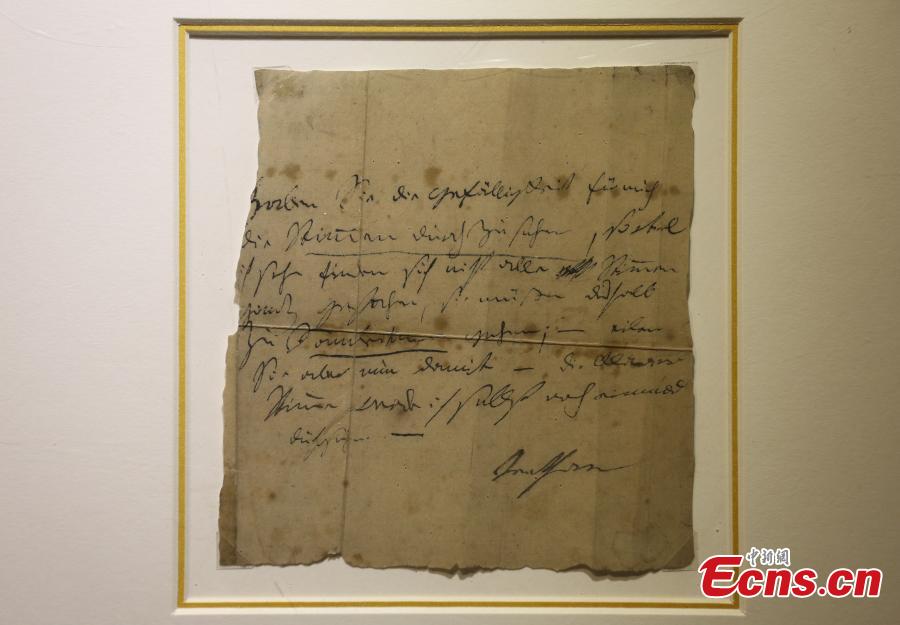 Haben Sie die Gefälligkeit für mich
die Stimmen durchzusehen, sobald
ich sehe finden sich nicht alle Stimmen
ganz gestochen, sie müßen deshalb
zu gehen; – eilen
Sie aber nun damit – die
Stimme werde ich selbst noch einmal
durchsehen –
Beethoven
中新網
Ecns.cn